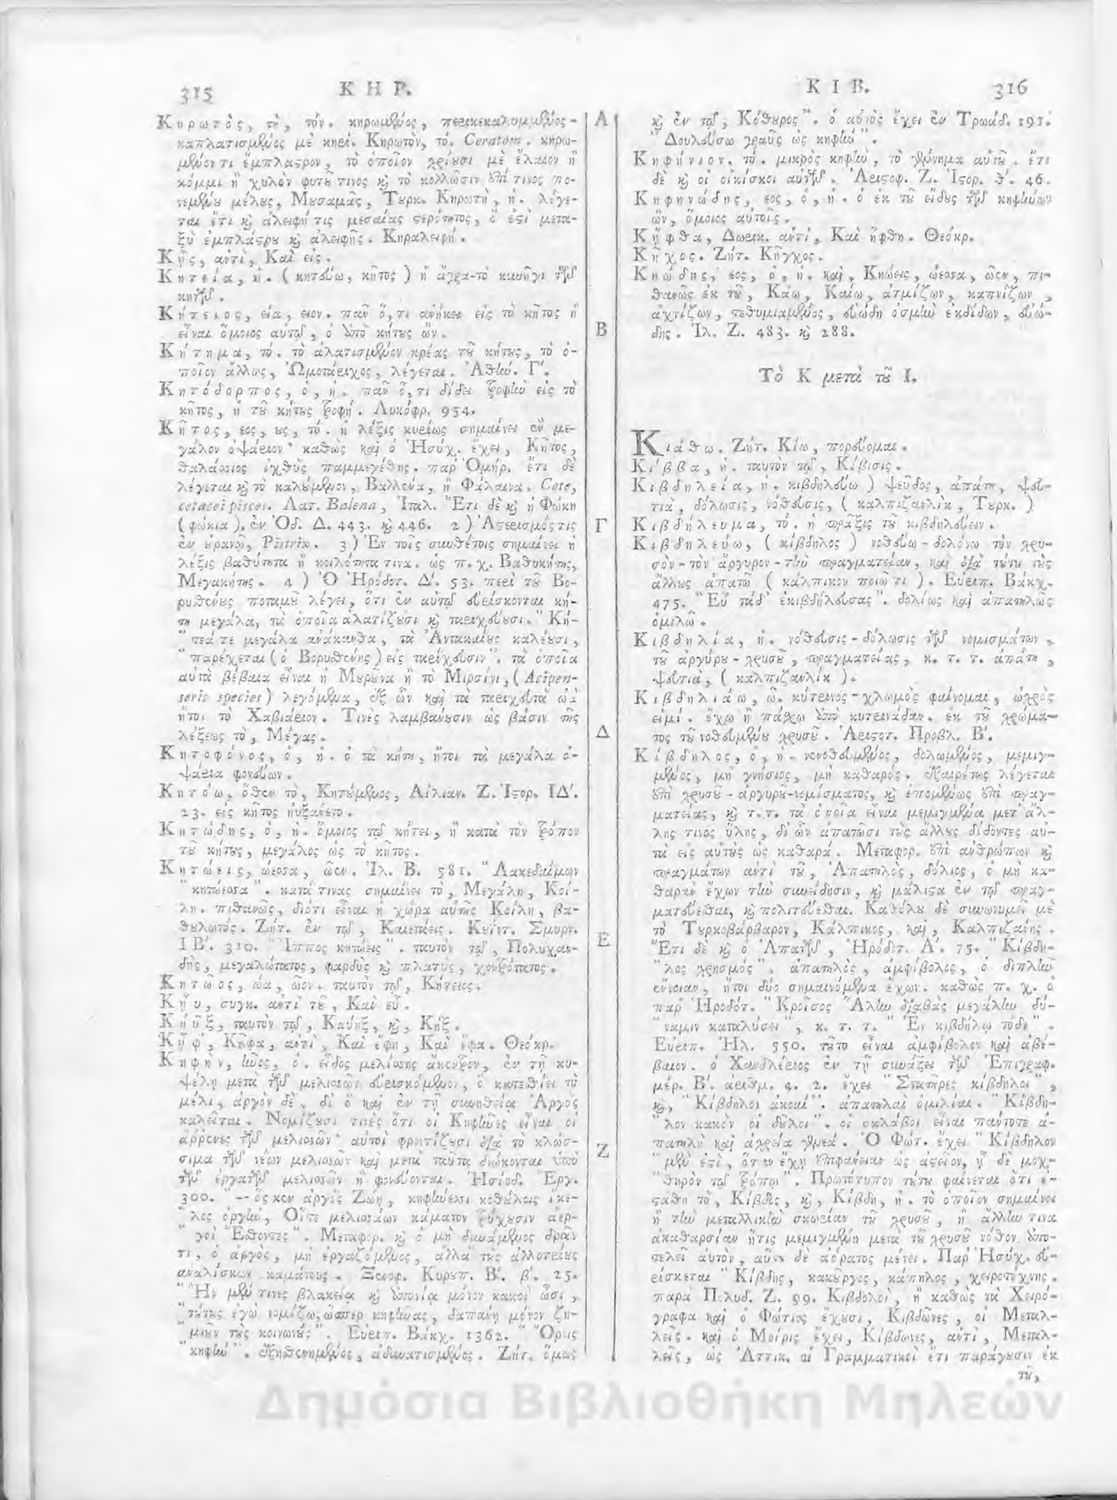 315 ΚΗΡ.
Κηρωτὸς, ὴ, τόν. κηρωμένος, περικεκαλυμμένος -
καπλατισμένος μὲ κηρί. Κηρωτὸν, τό. Ceratom. κηρω-
μένον τι ἔμπλαστρον, τὸ ὁποῖον χρίουσι μὲ ἔλαιον ἢ
κόμμι ἢ χυλὸν φυτοῦ τινος καὶ τὸ κολλῶσιν ἐπί τινος πο-
νεμένου μέλους, Μουσαμᾶς, Τουρκ. Κηρωτὴ, ἡ. λέγε-
ται ἔτι καὶ ἀλειφή τις μεσαίας στερότητος, ὅ ἐστι μετα-
ξὺ ἐμπλάστρου καὶ ἀλειφῆς. Κηραλειφή.
Κῂς, αντὶ, Καὶ εἰς.
Κητεία, ἡ. (κητεύω, κῆτος) ἡ ἄγρα-τὸ κυνῆγι τῶν
κητῶν.
Κήτειος, εία, ειον. πᾶν ὅ,τι ἀνήκει εἰς τὸ κῆτος ἢ
εἶναι ὅμοιος αὐτῷ, ὁ ὑπὸ κήτους ὤν.
Κήτημα, το. τὸ ἁλατισμένον κρέας τοῦ κήτους, τὸ ὁ-
ποῖον ἄλλως, Ὠμοτάριχος, λέγεται. Ἀθήν. Γ'.
Κητόδορπος, ὁ, ἡ. πᾶν ὅ,τι δίδει τροφὴν εἰς τὸ
κῆτος, ἡ τοῦ κήτους τροφή. Λυκόφρ. 954.
Κῆτος, εος, ους, τό. ἡ λέξις κυρίως σημαίνει ἓν με-
γάλον ὀψάριον· καθὼς καὶ ὁ Ἡσύχ. ἔχει, Κῆτος,
θαλάσσιος ἰχθὺς παμμεγέθης. παρ' Ὁμήρ. ἔτι δὲ
λέγεται καὶ τὸ καλούμενον, Βάλλενα, ἢ Φάλαινα. Cete,
cetacei pisces. Λατ. Balena, Ἰταλ. Ἔτι δὲ καὶ ἡ Φώκη
(φώκια), ἐν Ὀδ. Δ. 443. καὶ 446. 2) Ἀστερισμός τις
ἐν οὐρανῷ, Pistrix. 3) Ἐν τοῖς συνθέτοις σημαίνει ἡ
λέξις βαθύτητα ἢ κοιλότητα τινα. ὡς π.χ. Βαθυκήτης,
Μεγακήτης. 4) Ὁ Ἡρόδοτ. Δ'. 53. περὶ τοῦ Βο-
ρυσθένους ποταμοῦ λέγει, ὅτι ἐν αὐτῷ εὑρίσκονται κή-
τη μεγάλα, τὰ ὁποῖα ἁλατίζουσι καὶ ταριχεύουσι. "Κή-
"τεά τε μεγάλα ἀνάκανθα, τὰ Ἀντακαίους καλέουσι,
"παρέχεται (ὁ Βορυσθένης) εἰς ταρίχευσιν". τὰ ὁποῖα
αὐτὰ βέβαια εἶναι ἡ Μουρούνα ἢ τὸ Μιρσίνι, (Acipen-
serie species) λεγόμενα, ἐξ ὧν καὶ τὰ ταριχευτὰ ὠὰ
ἤτοι τὸ Χαβιάριον. Τινὲς λαμβάνουσιν ὡς βάσιν τῆς
λέξεως τὸ, Μέγας.
Κητοφόνος, ὁ, ἡ. ὁ τὰ κήτη, ἤτοι τὰ μεγάλα ὀ-
ψάρια φονεύων.
Κητόω, ὅθεν τὸ, Κητούμενος, Αἰλιαν. Ζ. Ἱστορ. ΙΔ'.
23. εἰς κῆτος ηὐξάνετο.
Κητώδης, ὁ, ἡ. ὅμοιος τῷ κήτει, ἢ κατὰ τὸν τρόπον
τοῦ κήτους, μεγάλος ὡς τὸ κῆτος.
Κητώεις, ώεσσα, ῶεν. Ἰλ. Β. 581. "Λακεδαίμων
"κητώεσσα". κατά τινας σημαίνει τὸ, Μεγάλη, Κοί-
λη. πιθανῶς, διότι εἶναι ἡ χώρα αὐτῆς Κοίλη, βα-
θουλωτός. Ζήτ. ἐν τῷ, Καιετάεις. Κοΐντ. Σμυρν.
ΙΒ'. 310. "Ἵππος κητώεις". ταυτὸν τῷ, Πολυχαν-
δὴς, μεγαλώτατος, φαρδὺς καὶ πλατὺς, χονδρότατος.
Κητῶος, ώα, ῶον. ταυτὸν τῷ, Κήτειος.
Κηὖ, συγκ. αντὶ τοῦ, Καὶ εὖ.
Κήϋξ, ταυτὸν τῷ, Καύηξ, καὶ, Κήξ.
Κἤφ', Κἤφα, αντὶ, Καὶ ἔφη, Καὶ ἔφα. Θεόκρ.
Κηφὴν, ῆνος, ὁ. εἶδος μελίσσης ἄκεντρον, ἐν τῇ κυ-
ψέλῃ μετὰ τῶν μελισσῶν εὑρισκόμενοι, ὁ κατεσθίει τὸ
μέλι, ἀργὸν δὲ. δι' ὃ καὶ ἐν τῇ συνηθείᾳ Ἀργὸς
καλεῖται. Νομίζουσι τινὲς ὅτι οἱ Κηφῆνες εἶναι οἱ
ἄρρενες τῶν μελισσῶν· αὐτοὶ φροντίζουσι διὰ τὸ κλώσ-
σιμα τῶν νέων μελισσῶν καὶ μετὰ ταῦτα διώκονται ὑπὸ
τῶν ἐργατῶν μελισσῶν ἢ φονεύονται. Ἡσίοδ. Ἔργ.
300. "--ὅς κεν ἀργὸς ζώῃ, κηφήνεσσι κοθούροις ἴκε-
"λος ὀργὴν, Οἵτε μελισσάων κάματον τρύχουσιν ἀερ-
"γοὶ Ἔσθοντες". Μεταφορ. καὶ ὁ μὴ δυνάμενος δρᾶν
τι, ὁ ἀργὸς, μὴ ἐργαζόμενος, ἀλλὰ τοὺς ἀλλοτρίους
ἀναλίσκων καμάτους. Ξενοφ. Κυροπ. Β'. β'. 25.
"Ἢν μέν τινες βλακείᾳ καὶ ἀπονίᾳ μόνον κακοὶ ὦσι,
"τούτους ἐγὼ νομίζω, ὥσπερ κηφῆνας, δαπάνῃ μόνον ζη-
"μιοῦν τοὺς κοινωνούς". Εὐριπ. Βάκχ. 1362. "Ὄρνις
"κηφὴν". ἐξησθενημένος, ἀδυνατισμένος. Ζήτ. ὅμως
Α
Β
Γ
Δ
Ε
Ζ
ΚΙΒ. 316
καὶ ἐν τῷ, Κόθουρος". ὁ αὐτὸς ἔχει ἐν Τρωάδ. 191.
"Δουλεύσω γραῦς ὡς κηφὴν".
Κηφήνιον. τό. μικρὸς κηφὴν, τὸ γέννημα αὐτοῦ. ἔτι
δὲ καὶ οἱ οἰκίσκοι αὐτῶν. Ἀριστοφ. Ζ. Ἱστορ. θ'. 46.
Κηφηνώδης, εος, ὁ, ἡ. ὁ ἐκ τοῦ εἴδους τῶν κηφήνων
ὢν, ὅμοιος αὐτοῖς.
Κἤφθα, Δωρικ. αντὶ, Καὶ ἤφθη. Θεόκρ.
Κῆχος. Ζήτ. Κῆγχος.
Κηώδης, εος, ὁ, ἡ. καὶ, Κηώεις, ώεσσα, ῶεν, πι-
θανῶς ἐκ τοῦ, Κάω, Καίω, ἀτμίζων, καπνίζων,
ἀχνίζων, τεθυμιαμένος, εὐώδη ὀσμὴν ἐκδίδων, εὐώ-
δης. Ἰλ. Ζ. 483. καὶ 288.
Τὸ Κ μετὰ τοῦ Ι.
Κιάθω. Ζήτ. Κίω, πορεύομαι.
Κίββα, ἡ. ταυτὸν τῷ, Κίβισις.
Κιβδηλεία, ἡ. κιβδηλεύω) ψεῦδος, ἀπάτη, ψευ-
τιὰ, δόλωσις, νόθευσις, (καλπιζανλὶκ, Τουρκ.)
Κιβδήλευμα, τό. ἡ πρᾶξις τοῦ κιβδηλεύειν.
Κιβδηλεύω, (κίβδηλος) νοθεύω-δολόνω τὸν χρυ-
σὸν-τὸν ἄργυρον-τὴν πραγματείαν, καὶ διὰ τούτου τοὺς
ἄλλους ἀπατῶ (κάλπικον ποιῶ τι). Εὐριπ. Βάκχ.
475. "Εὖ τάδ' ἐκιβδήλευσας". δολίως καὶ ἀπατηλῶς
ὁμιλῶ.
Κιβδηλία, ἡ. νόθευσις-δόλωσις τῶν νομισμάτων,
τοῦ ἀργύρου-χρυσοῦ, πραγματείας, κ. τ. τ. ἀπάτη,
ψευτιὰ, (καλπιζανλὶκ).
Κιβδηλιάω, ῶ. κύτρινος-χλωμὸς φαίνομαι, ὠχρὸς
εἰμί. ἔχω ἢ πάσχω ὑπὸ κυτρινάδαν. ἐκ τοῦ χρώμα-
τος τοῦ νοθευμένου χρυσοῦ. Ἀριστοτ. Προβλ. Β'.
Κίβδηλος, ὁ, ἡ. νενοθευμένος, δολωμένος, μεμιγ-
μένος, μὴ γνήσιος, μὴ καθαρός. ἐξαιρέτως λέγεται
ἐπὶ χρυσοῦ-ἀργύρου-νομίσματος, καὶ ἑπομένως ἐπὶ πραγ-
ματείας, καὶ τ.τ. τὰ ὁποῖα εἶναι μεμιγμένα μετ' ἄλ-
λης τινος ὕλης, δι' ὧν ἀπατῶσι τοὺς ἄλλους δίδοντες αὐ-
τὰ εἰς αὐτοὺς ὡς καθαρά. Μεταφορ. ἐπὶ ἀνθρώπων καὶ
πραγμάτων αντὶ τοῦ, Ἀπατηλὸς, δόλιος, ὁ μὴ κα-
θαρὰν ἔχων τὴν συνείδησιν, καὶ μάλιστα ἐν τῷ πραγ-
ματεύεσθαι, καὶ πολιτεύεσθαι. Καθόλου δὲ συνωνυμεῖ μὲ
τὸ Τουρκοβάρβαρον, Κάλπικος, καὶ, Καλπιζάνης.
Ἔτι δὲ καὶ ὁ Ἀπατῶν, Ἡρόδοτ. Α'. 75. "Κίβδη-
"λος χρησμὸς". ἀπατηλὸς, ἀμφίβολος, ὁ διπλῆν
ἔννοιαν, ἤτοι δύο σημαινόμενα ἔχων. καθὼς π. χ. ὁ
παρ' Ἡροδότ. "Κροῖσος Ἅλυν διαβὰς μεγάλην δύ-
"ναμιν καταλύσει", κ. τ. τ. "Ἐν κιβδήλῳ τόδε".
Εὐριπ. Ἠλ. 550. τοῦτο εἶναι ἀμφίβολον καὶ ἀβέ-
βαιον. ὁ Χανδλίειος ἐν τῇ συνάξει τῶν Ἐπιγραφ.
μέρ. Β'. ἀριθμ. 4. 2. ἔχει "Στατῆρες κίβδηλοι",
καὶ, "Κίβδηλοι ἀκοαί". ἀπατηλαὶ ὁμιλίαι. "Κίβδη-
"λον κακὸν οἱ δοῦλοι". οἱ σκλάβοι εἶναι πάντοτε ἀ-
πατηλὴ καὶ ἀχρεία γενεά. Ὁ Φώτ. ἔχει "Κίβδηλον
"μέν ἐστι, ὅταν ἔχῃ ἐπιφάνειαν ὡς ἀστεῖον, ᾖ δὲ μοχ-
"θηρὸν τῷ τρόπῳ". Πρωτότυπον τούτου φαίνεται ὅτι ἐ-
στάθη τὸ, Κίβδος, καὶ, Κίβδη, ἡ. τὸ ὁποῖον σημαίνει
ἢ τὴν μεταλλικὴν σκωρίαν τοῦ χρυσοῦ, ἢ ἄλλην τινα
ἀκαθαρσίαν ἥτις μεμιγμένη μετὰ τοῦ χρυσοῦ νόθον ἀπο-
τελεῖ αὐτὸν, αὕτη δὲ ἀόρατος μένει. Παρ' Ἡσύχ. εὑ-
ρίσκεται "Κίβδης, κακοῦργος, κάπηλος, χειροτέχνης.
παρὰ Πολυδ. Ζ. 99. Κιβδολοὶ, ἢ καθὼς τὰ Χειρό-
γραφα καὶ ὁ Φώτιος ἔχουσι, Κιβδῶνες, οἱ Μεταλ-
λεῖς. καὶ ὁ Μοῖρις ἔχει, Κίβδωνες, αντὶ, Μεταλ-
λεῖς, ὡς Ἀττικ. οἱ Γραμματικοὶ ἔτι παράγουσιν ἐκ
τοῦ,
Δημόσια Βιβλιοθήκη Μηλεών